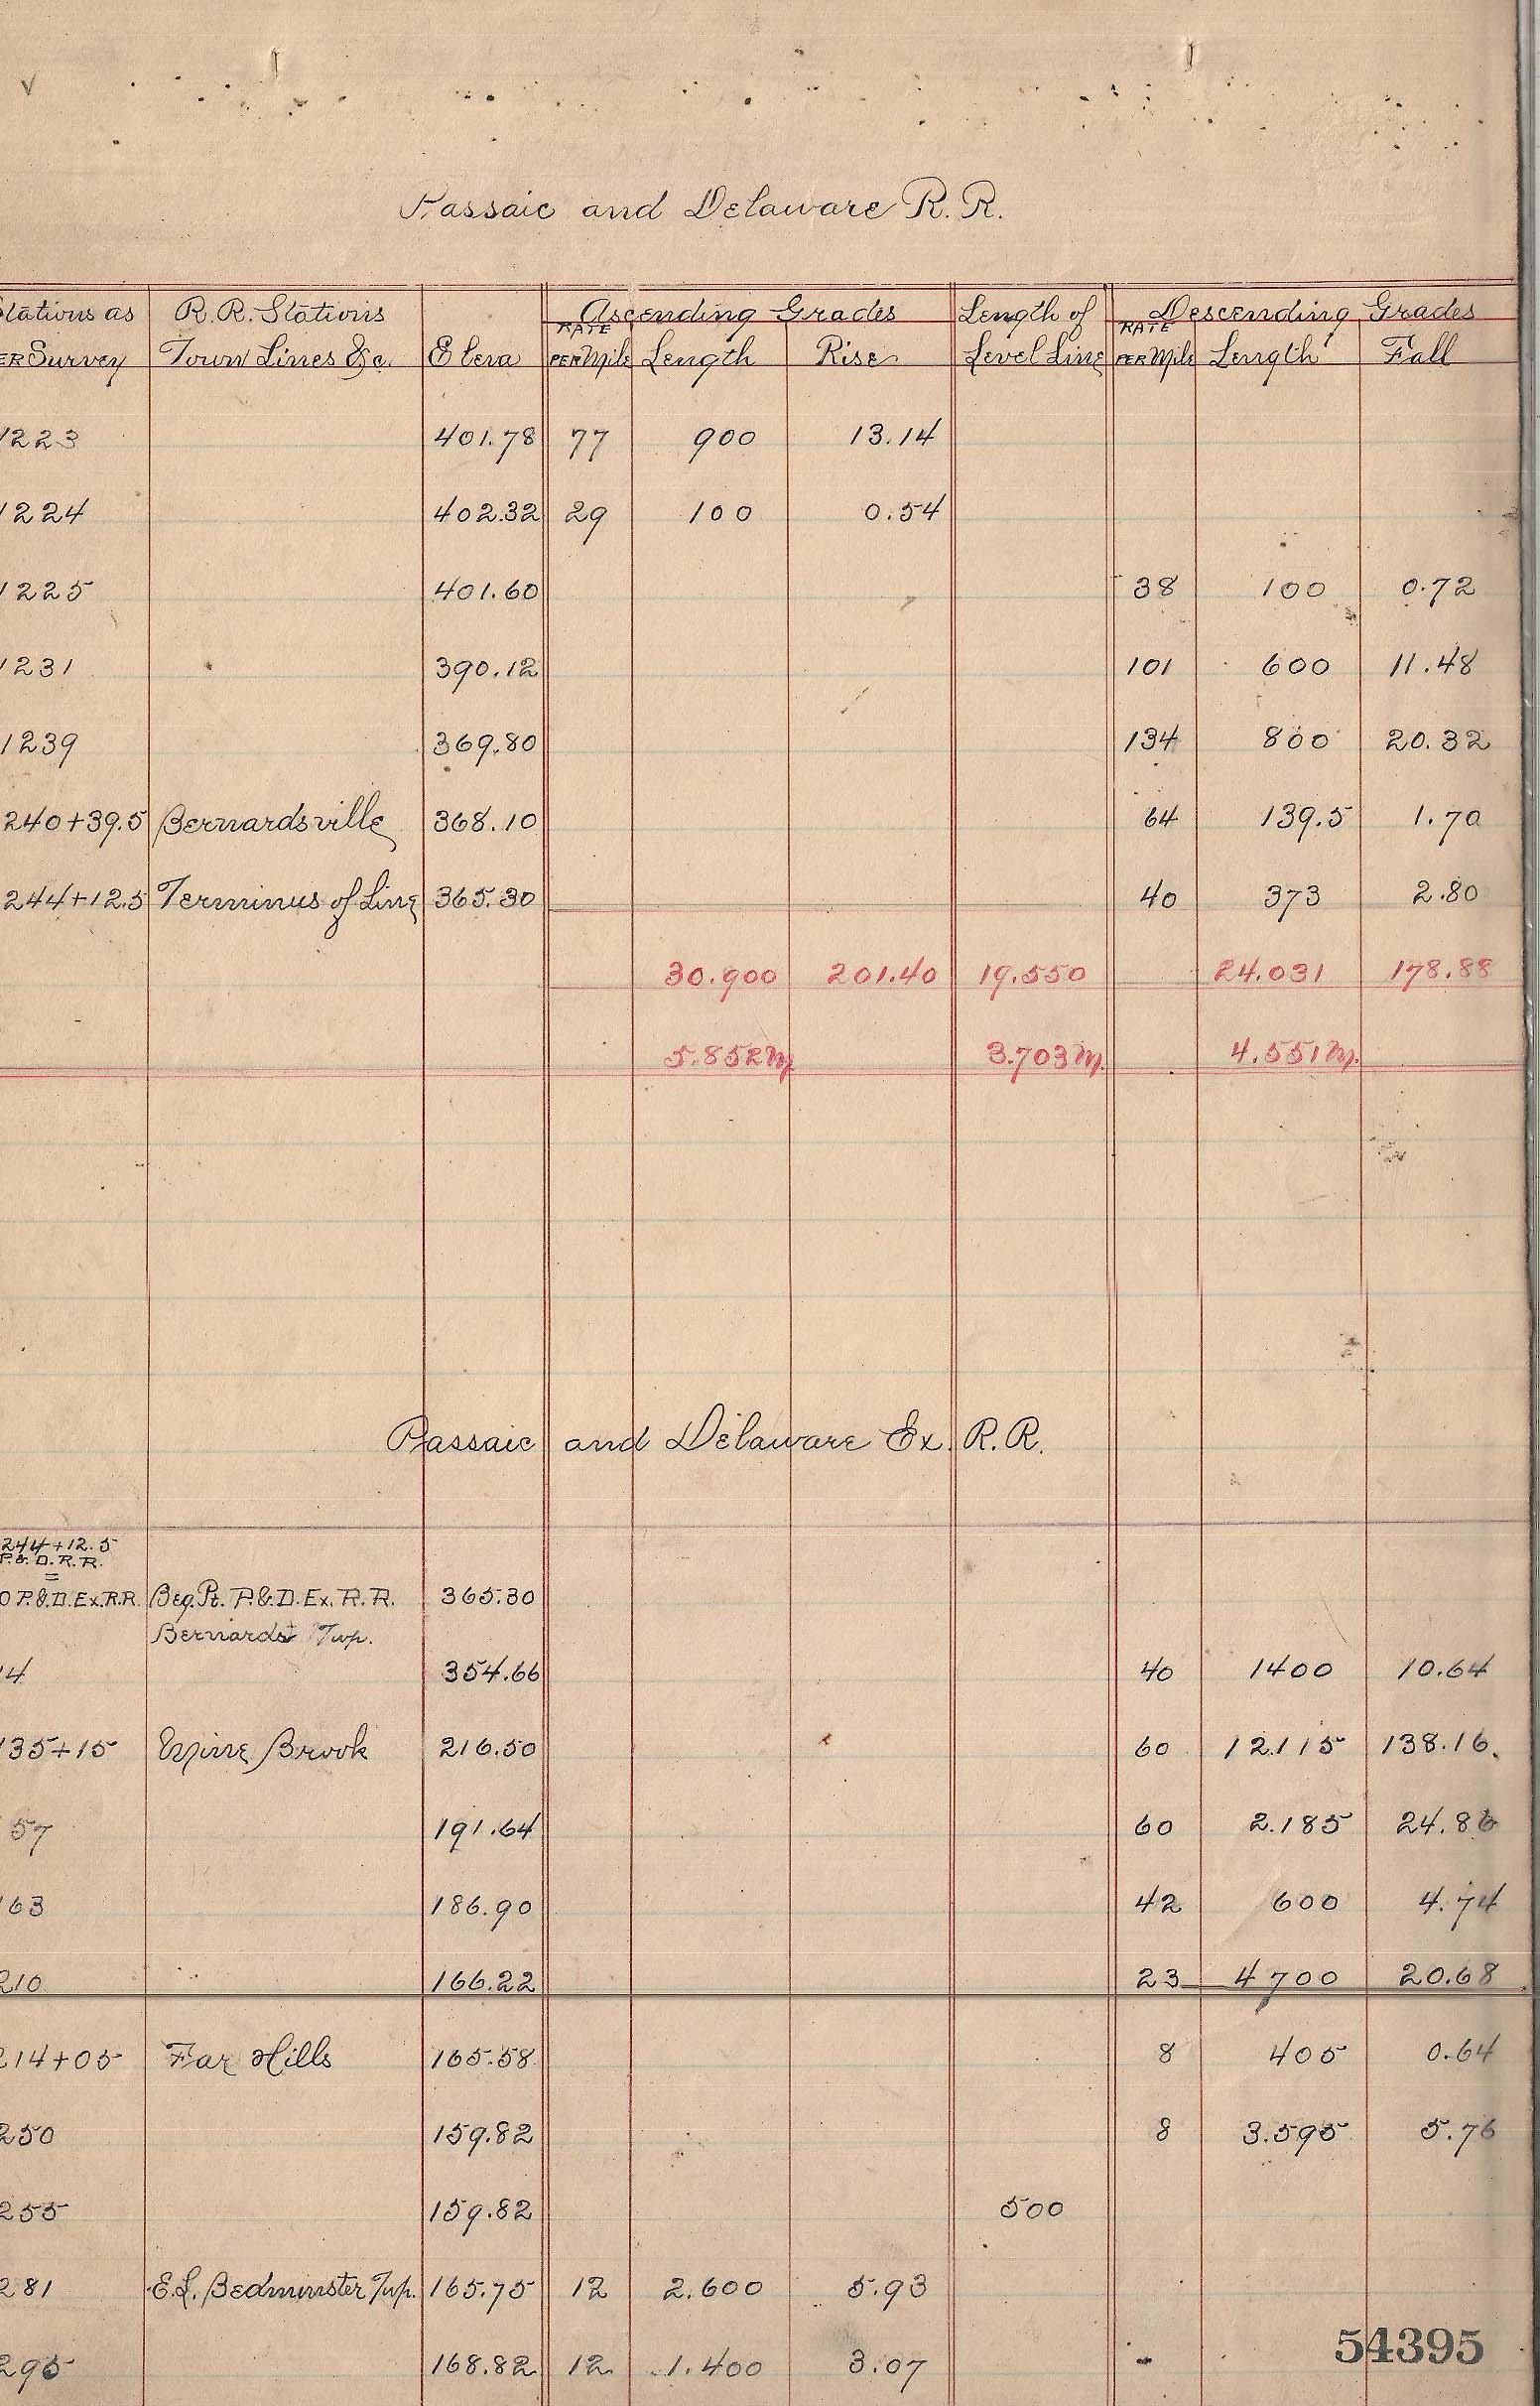 Passaic and Delaware R. R.
Stations as | R. R. Stations | | Ascending Grades | Length of | Descending Grades
PER Survey | Town Lines &c. | Eleva | RATE PER Mile | Length | Rise | Level Line | RATE PER Mile | Length | Fall
1223 | | 401.78 | 77 | 900 | 13.14
1224 | | 402.32 | 29 | 100 | 0.54
1225 | | 401.60 | | | | | 38 | 100 | 0.72
1231 | | 390.12 | | | | | 101 | 600 | 11.48
1239 | | 369.80 | | | | | 134 | 800 | 20.32
240+39.5 | Bernardsville | 368.10 | | | | | 64 | 139.5 | 1.70
244+12.5 | Terminus of Line | 365.30 | | | | | 40 | 373 | 2.80
30.900 | 201.40 | 19.550 | | 24.031 | 178.88
5.852 M. | | 3.703 M. | | 4.551 M.
Passaic and Delaware Ex. R. R.
244+12.5
P. & D. R. R.
=
0 P. & D. Ex. R.R. | Beg. Pt. P. & D. Ex. R. R. | 365.30
Bernards Twp.
14 | | 354.66 | | | | | 40 | 1400 | 10.64
135+15 | Mine Brook | 216.50 | | | | | 60 | 12.115 | 138.16
157 | | 191.64 | | | | | 60 | 2.185 | 24.86
163 | | 186.90 | | | | | 42 | 600 | 4.74
210 | | 166.22 | | | | | 23 | 4700 | 20.68
214+05 | Far Hills | 165.58 | | | | | 8 | 405 | 0.64
250 | | 159.82 | | | | | 8 | 3.595 | 5.76
255 | | 159.82 | | | | 500
281 | E. L. Bedminster Twp. | 165.75 | 12 | 2.600 | 5.93
295 | | 168.82 | 12 | 1.400 | 3.07
54395